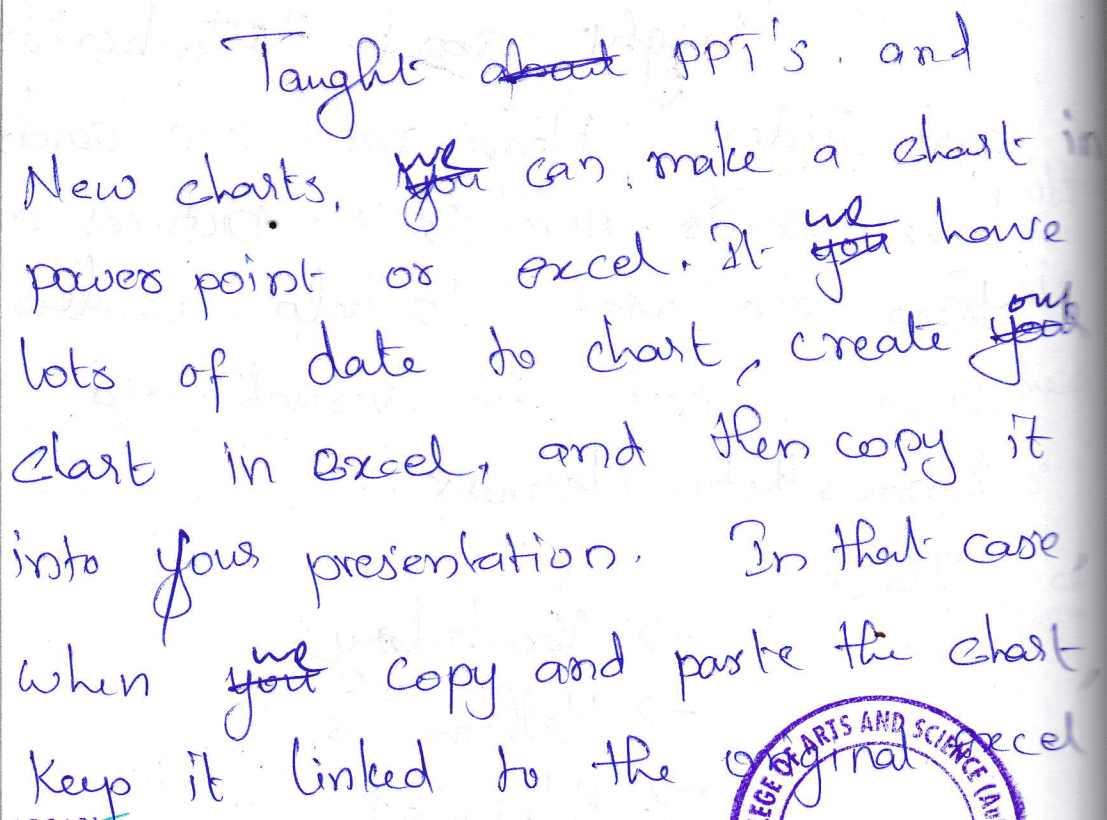 Taught about PPT's and
New charts, you we can make a chart in
power point or excel. If you we have
lots of date to chart, create your our
chart in excel, and then copy it
into your presentation. In that case,
when you we copy and paste the chart,
Keep it linked to the original Excel
EGE OF ARTS AND SCIENCE (Au